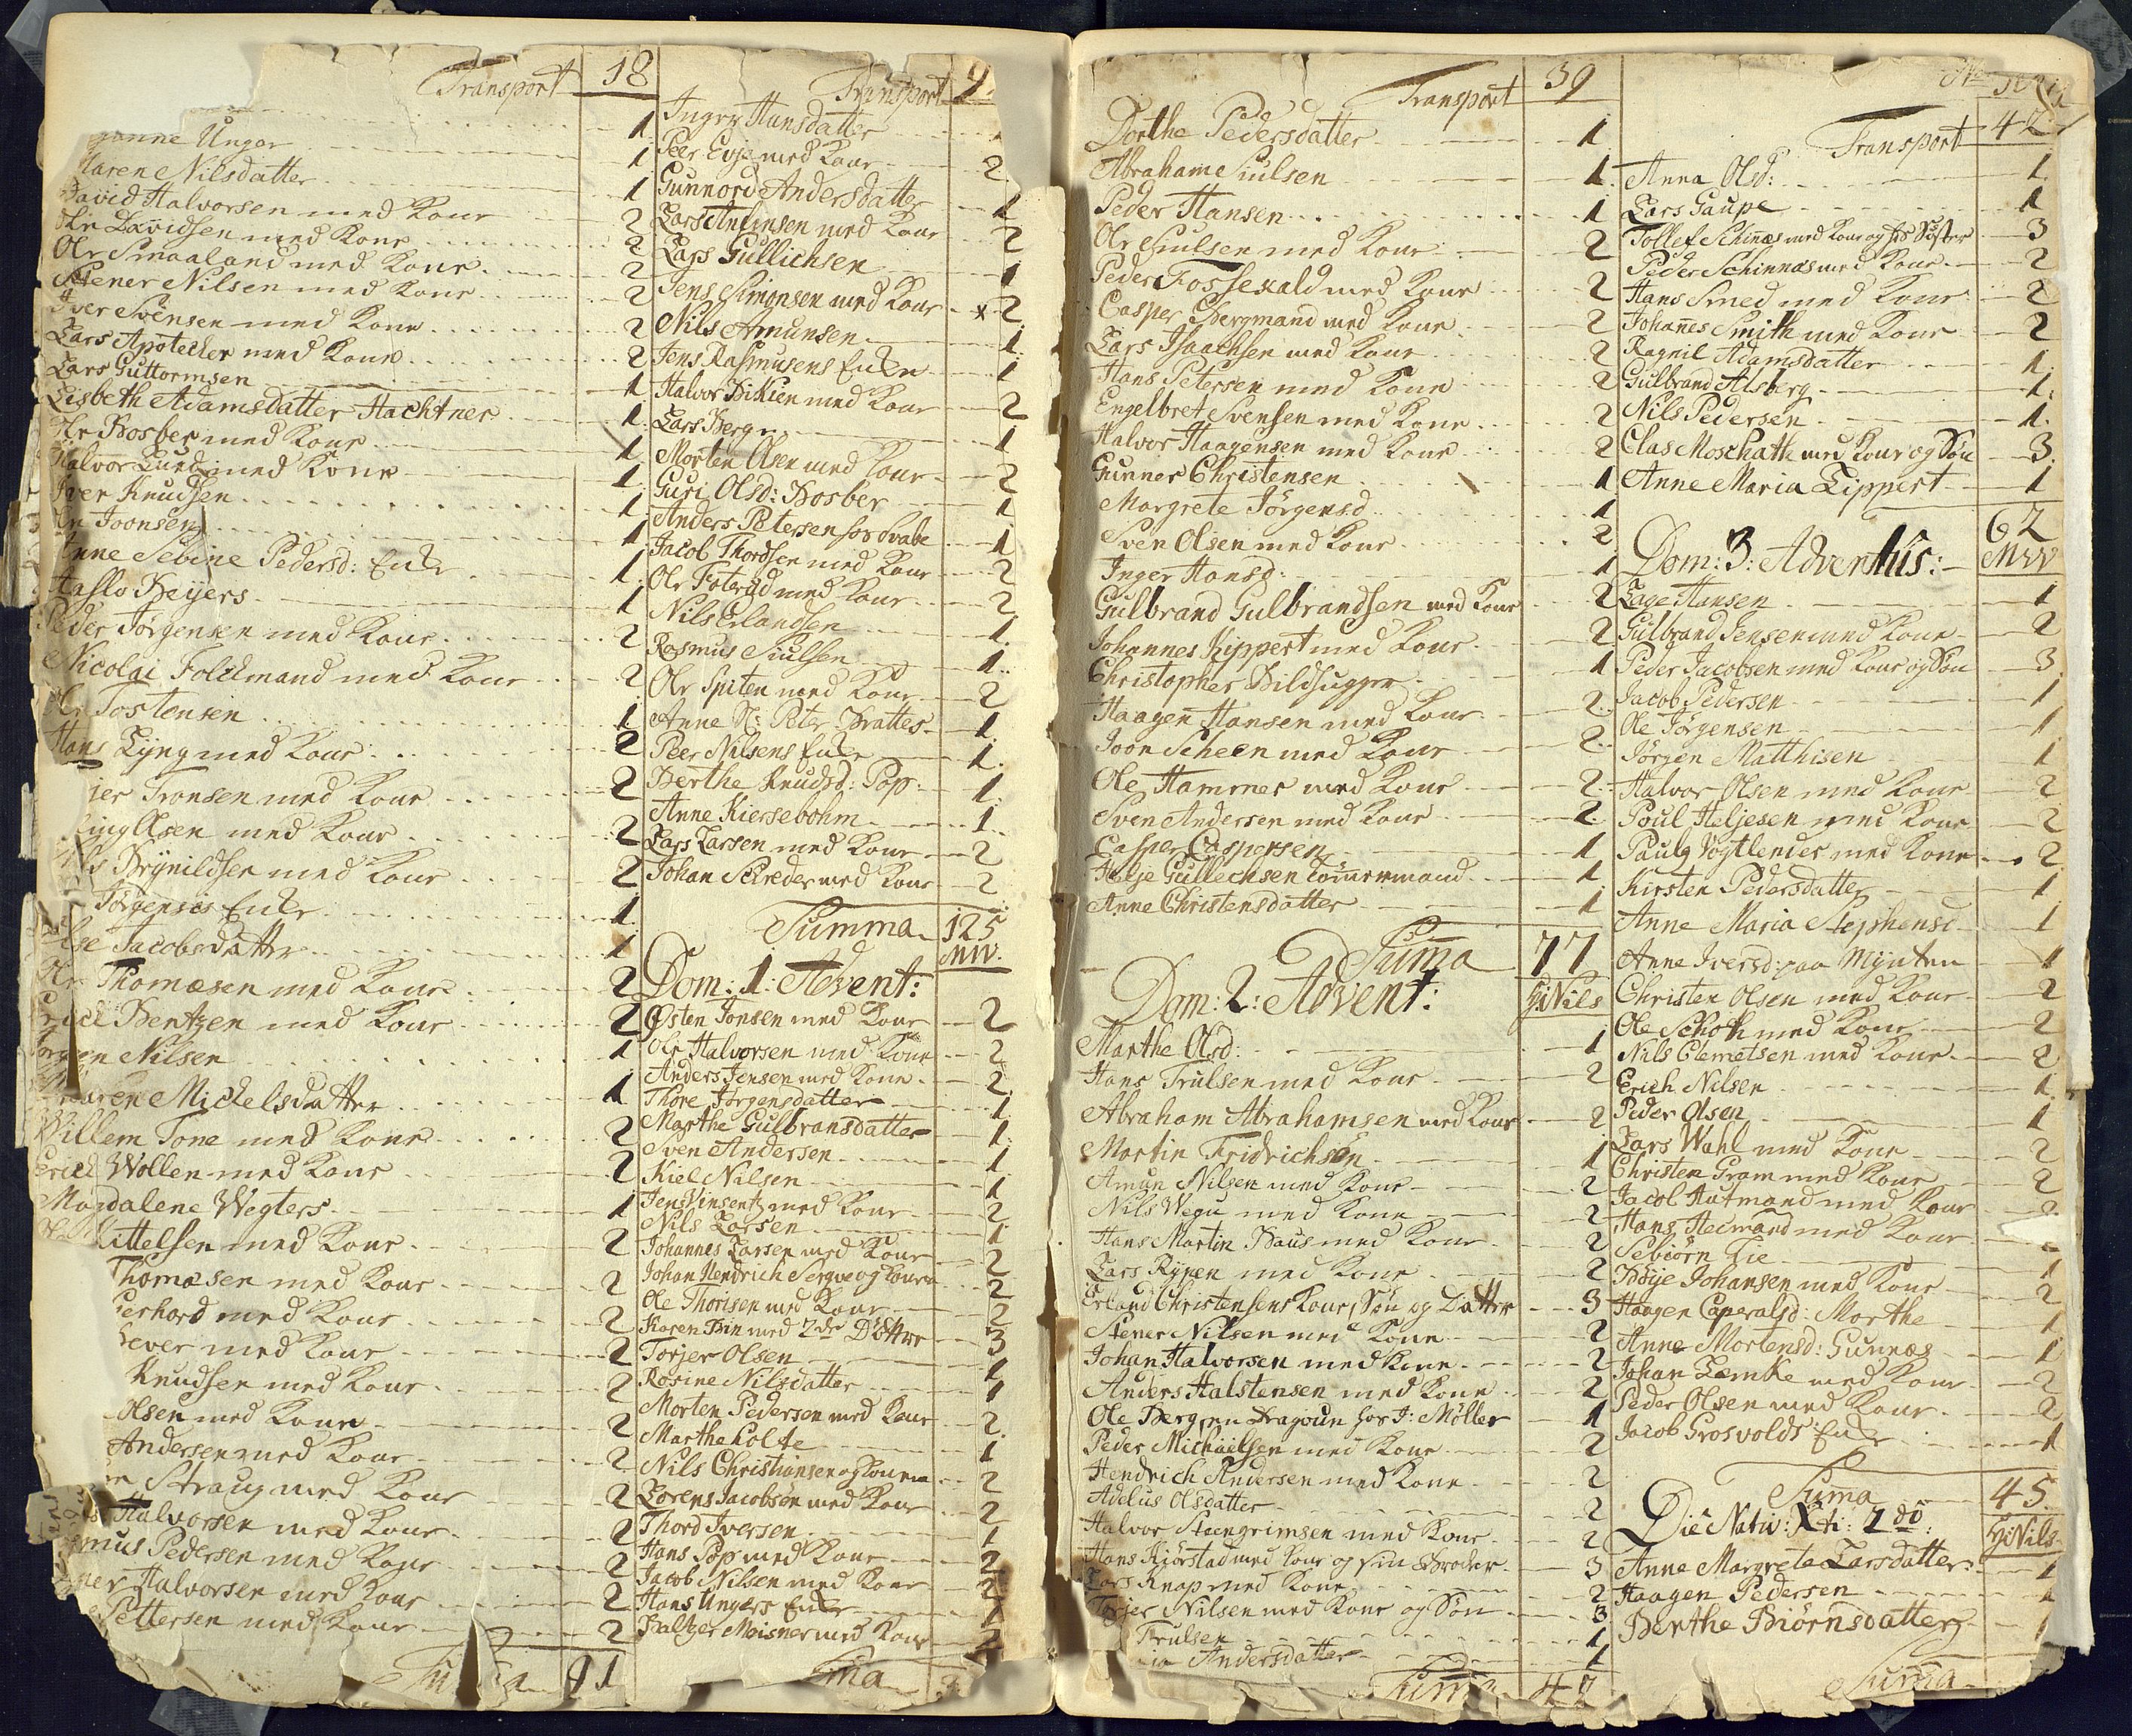 Transport 18
anne Ungar 1
Maren Nilsdatter 1
David Halvorsen med Kone 2
Davidsen med Kone 2
Ole Smaaland med Kone 2
Stener Nilsen med Kone 2
Iver Svensen med Kone 2
Lars Apotecker med Kone 2
Lars Guttormsen 1
Lisbeth Adamsdatter Hachtner 1
Ole Bosber med Kone 1
Halvor Lund med Kone 1
Iver Knudsen 1
Joonsen 1
Anne Sebine Pedersd: Encke 1
Beyers 1
Peder Jørgensen med Kone 2
Nicolai Foldmand med Kone 2
Ole Tostensen 1
Hans Lyng med Kone 2
Tronsen med Kone 2
Olsen med Kone 2
Brynildsen med Kone 2
Jørgensis Encke 1
Else Jacobsdatter 1
Ole Thomæsen med Kone 2
Bentzen med Kone 2
Nilsen 1
Mickelsdatter 1
Willem Tone med Kone 2
Erich Wollen med Kone 2
Magdalene Wegters 1
Kittelsen med Kone 2
Thomæsen med Kone 2
Gerhard med Kone 2
med Kone 2
Knudsen med Kone 2
Olsen med Kone 2
Andersen med Kone 2
Straug med Kone 2
Halvorsen med Kone 2
Pedersen med Kone 2
Halvorsen med Kone 2
Pettersen med Kone 2
91
Transport
Ingry Hansdatter
Peer Evje med Kone 2
Gunnord Andersdatter 1
Lars Anfinsen med Kone 2
Lars Gullichsen 1
Jens Simonsen med Kone * 2
Nils Amunsen 1
Jens Rasmusens Encke 1
Halvor Dikken med Kone 2
Lars Berg 1
Morten Olsen med Kone 2
Guri Olsd: Bosber 1
Anders Petersen hos Svabe 1
Jacob Thordsen med Kone 2
Ole Foterud med Kone 2
Nils Erlandsen 1
Rasmus Siulsen 1
Ole Spiten med Kone 2
Anne N: Peter Brattes 1
Peer Nilsens Encke 1
Berthe Knudsd: Pop 1
Anne Kiersebohm 1
Lars Larsen med Kone 2
Johan Schreder med Kone 2
Summa 125
Dom: 1: Advent: MW.
Østen Jonsen med Kone 2
Ole Halvorsen med Kone 2
Anders Jensen med Kone 2
Thore Jørgensdatter 1
Marthe Gulbransdatter 1
Sven Andersen 1
Kiel Nilsen 1
Jens Vinsentz med Kone 2
Nils Larsen 1
Johannes Larsen med Kone 2
Johan Hendrich Sergve og Konen 2
Ole Thorisen med Kone 2
Karen Brin med 2de Døttre 3
Torjer Olsen 1
Rosine Nilsdatter 1
Morten Pedersen med Kone 2
Marthe Holte 1
Nils Christiansen og Konen 2
Lorens Jacobsøn med Kone 2
Thord Iversen 1
Hans Pop med Kone 2
Jacob Nilsen med Kone 2
Hans Ungers Encke 1
Baltzer Meisner med Kone 2
Transport 39
Dorthe Pedersdatter 1
Abraham Siulsen 1
Peder Hansen 1
Ole Siulsen med Kone 2
Peder Fossexald med Kone 2
Casper Bergmand med Kone 2
Lars Isaachsen med Kone 2
Hans Petersen med Kone 2
Engelbret Svensen med Kone 2
Halvor Haagensen med Kone 2
Gunner Christensen 1
Margrete Jörgensd 1
Sven Olsen med Kone 2
Inger Hansd: 1
Gulbrand Gulbrandsen med Kone 2
Johannes Kippert med Kone 2
Christopher Bildhugger 1
Haagen Hansen med Kone 2
Joon Scheen med Kone 2
Ole Hammer med Kone 2
Sven Andersen med Kone 2
Casper Caspersen 1
Helje Gullechsen Tömmermand 1
Anne Christensdatter 1
Suma 77
Dom: 2: Advent: Hr Nils
Marthe Olsd: 1
Hans Trulsen med Kone 2
Abraham Abrahamsen med Kone 2
Martin Fridrichsen 1
Amun Nilsen med Kone 2
Nils Wegu med Kone 2
Hans Martin Baus med Kone 2
Lars Rypen med Kone 2
Erland Christensens Kone, Søn og Datter 3
Stener Nilsen med Kone 2
Johan Halvorsen med Kone 2
Anders Halstensen med Kone 2
Ole Berg en Dragoun hos J: Møller 1
Peder Michaelsen med Kone 2
Hendrich Andersen med Kone 2
Adelus Olsdatter 2
Halvor Steengrimsen med Kone 2
Hans Kjörstad med Kone og sin Broder 3
Lars Knap med Kone 2
Torjer Nilsen med Kone og Søn 3
Trulsen 1
Andersdatter 1
Summa 47
Transport 42
Anna Olsd: 1
Lars Gaupe 1
Tollef Schinnes med Kone og hs Søster 3
Peder Schinnes med Kone 2
Hans Smed med Kone 2
Johannes Smith med Kone 2
Ragnil Adamsdatter 1
Gulbrand Alsberg 1
Nils Pedersen 1
Clas Moschath med Kone og Søn 3
Anne Maria Lippert 1
62
Dom: 3: Adventus: MW
Lage Hansen 1
Gulbrand Jensen med Kone 2
Peder Jacobsen med Kone og Søn 3
Jacob Pedersen 1
Ole Jørgensen 1
Jørgen Matthisen 1
Halvor Olsen med Kone 2
Poul Heljesen med Kone 2
Paulg Vogtlender med Kone 2
Kirsten Pedersdatter 1
Anne Maria Stephensd 1
Anne Iversd: paa Mynten 1
Christen Olsen med Kone 2
Ole Schoth med Kone 2
Nils Clemetsen med Kone 2
Erich Nilsen 1
Peder Olsen 1
Lars Wahl med Kone 2
Christen Gram med Kone 2
Jacob Hutmand med Kone 2
Hans Heimand med Kone
Sebiörn Lie 1
Böye Johansen med Kone 2
Haagen Caperalsd: Marthe 1
Anne Mortensd: Gunnæs 1
Johan Lemke med Kone 2
Peder Olsen med Kone 2
Jacob Grosvolds Encke 1
Suma 45
Die Nativ: Xti: 2do: Hr Nils
Anne Margrete Larsdatter 1
Haagen Pedersen 1
Berthe Biörnsdatter 1
Suma